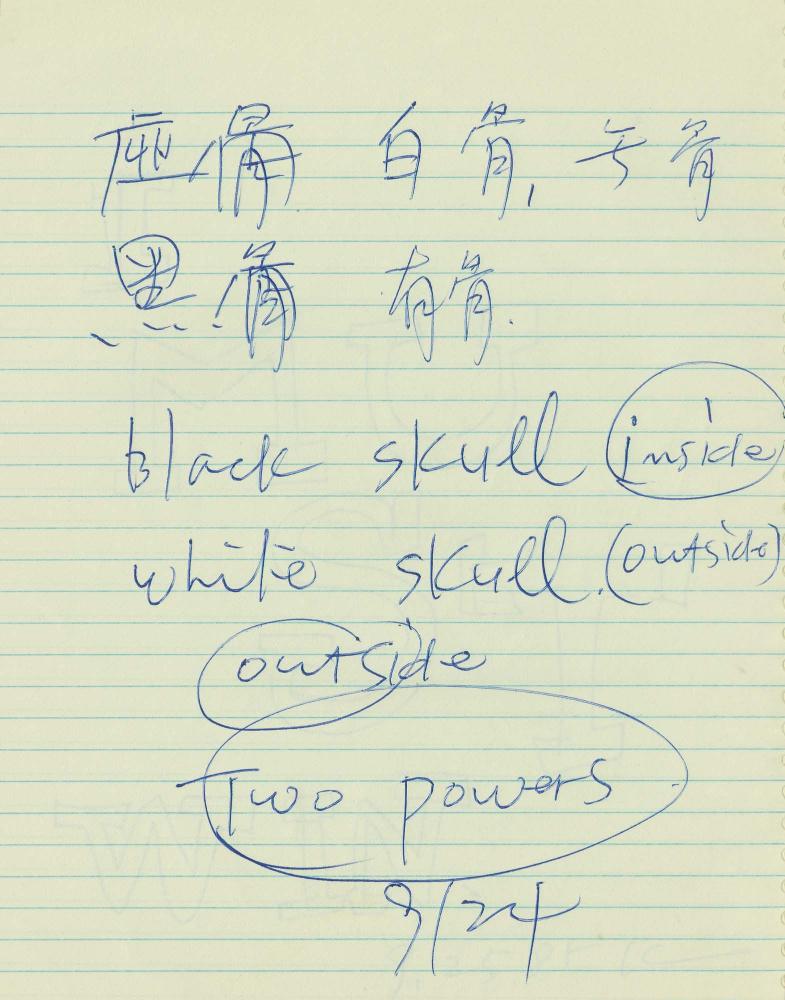 白骨, 无骨
黑骨 有骨.
black skull (inside)
white skull. (outside)
outside
Two powers
9/24